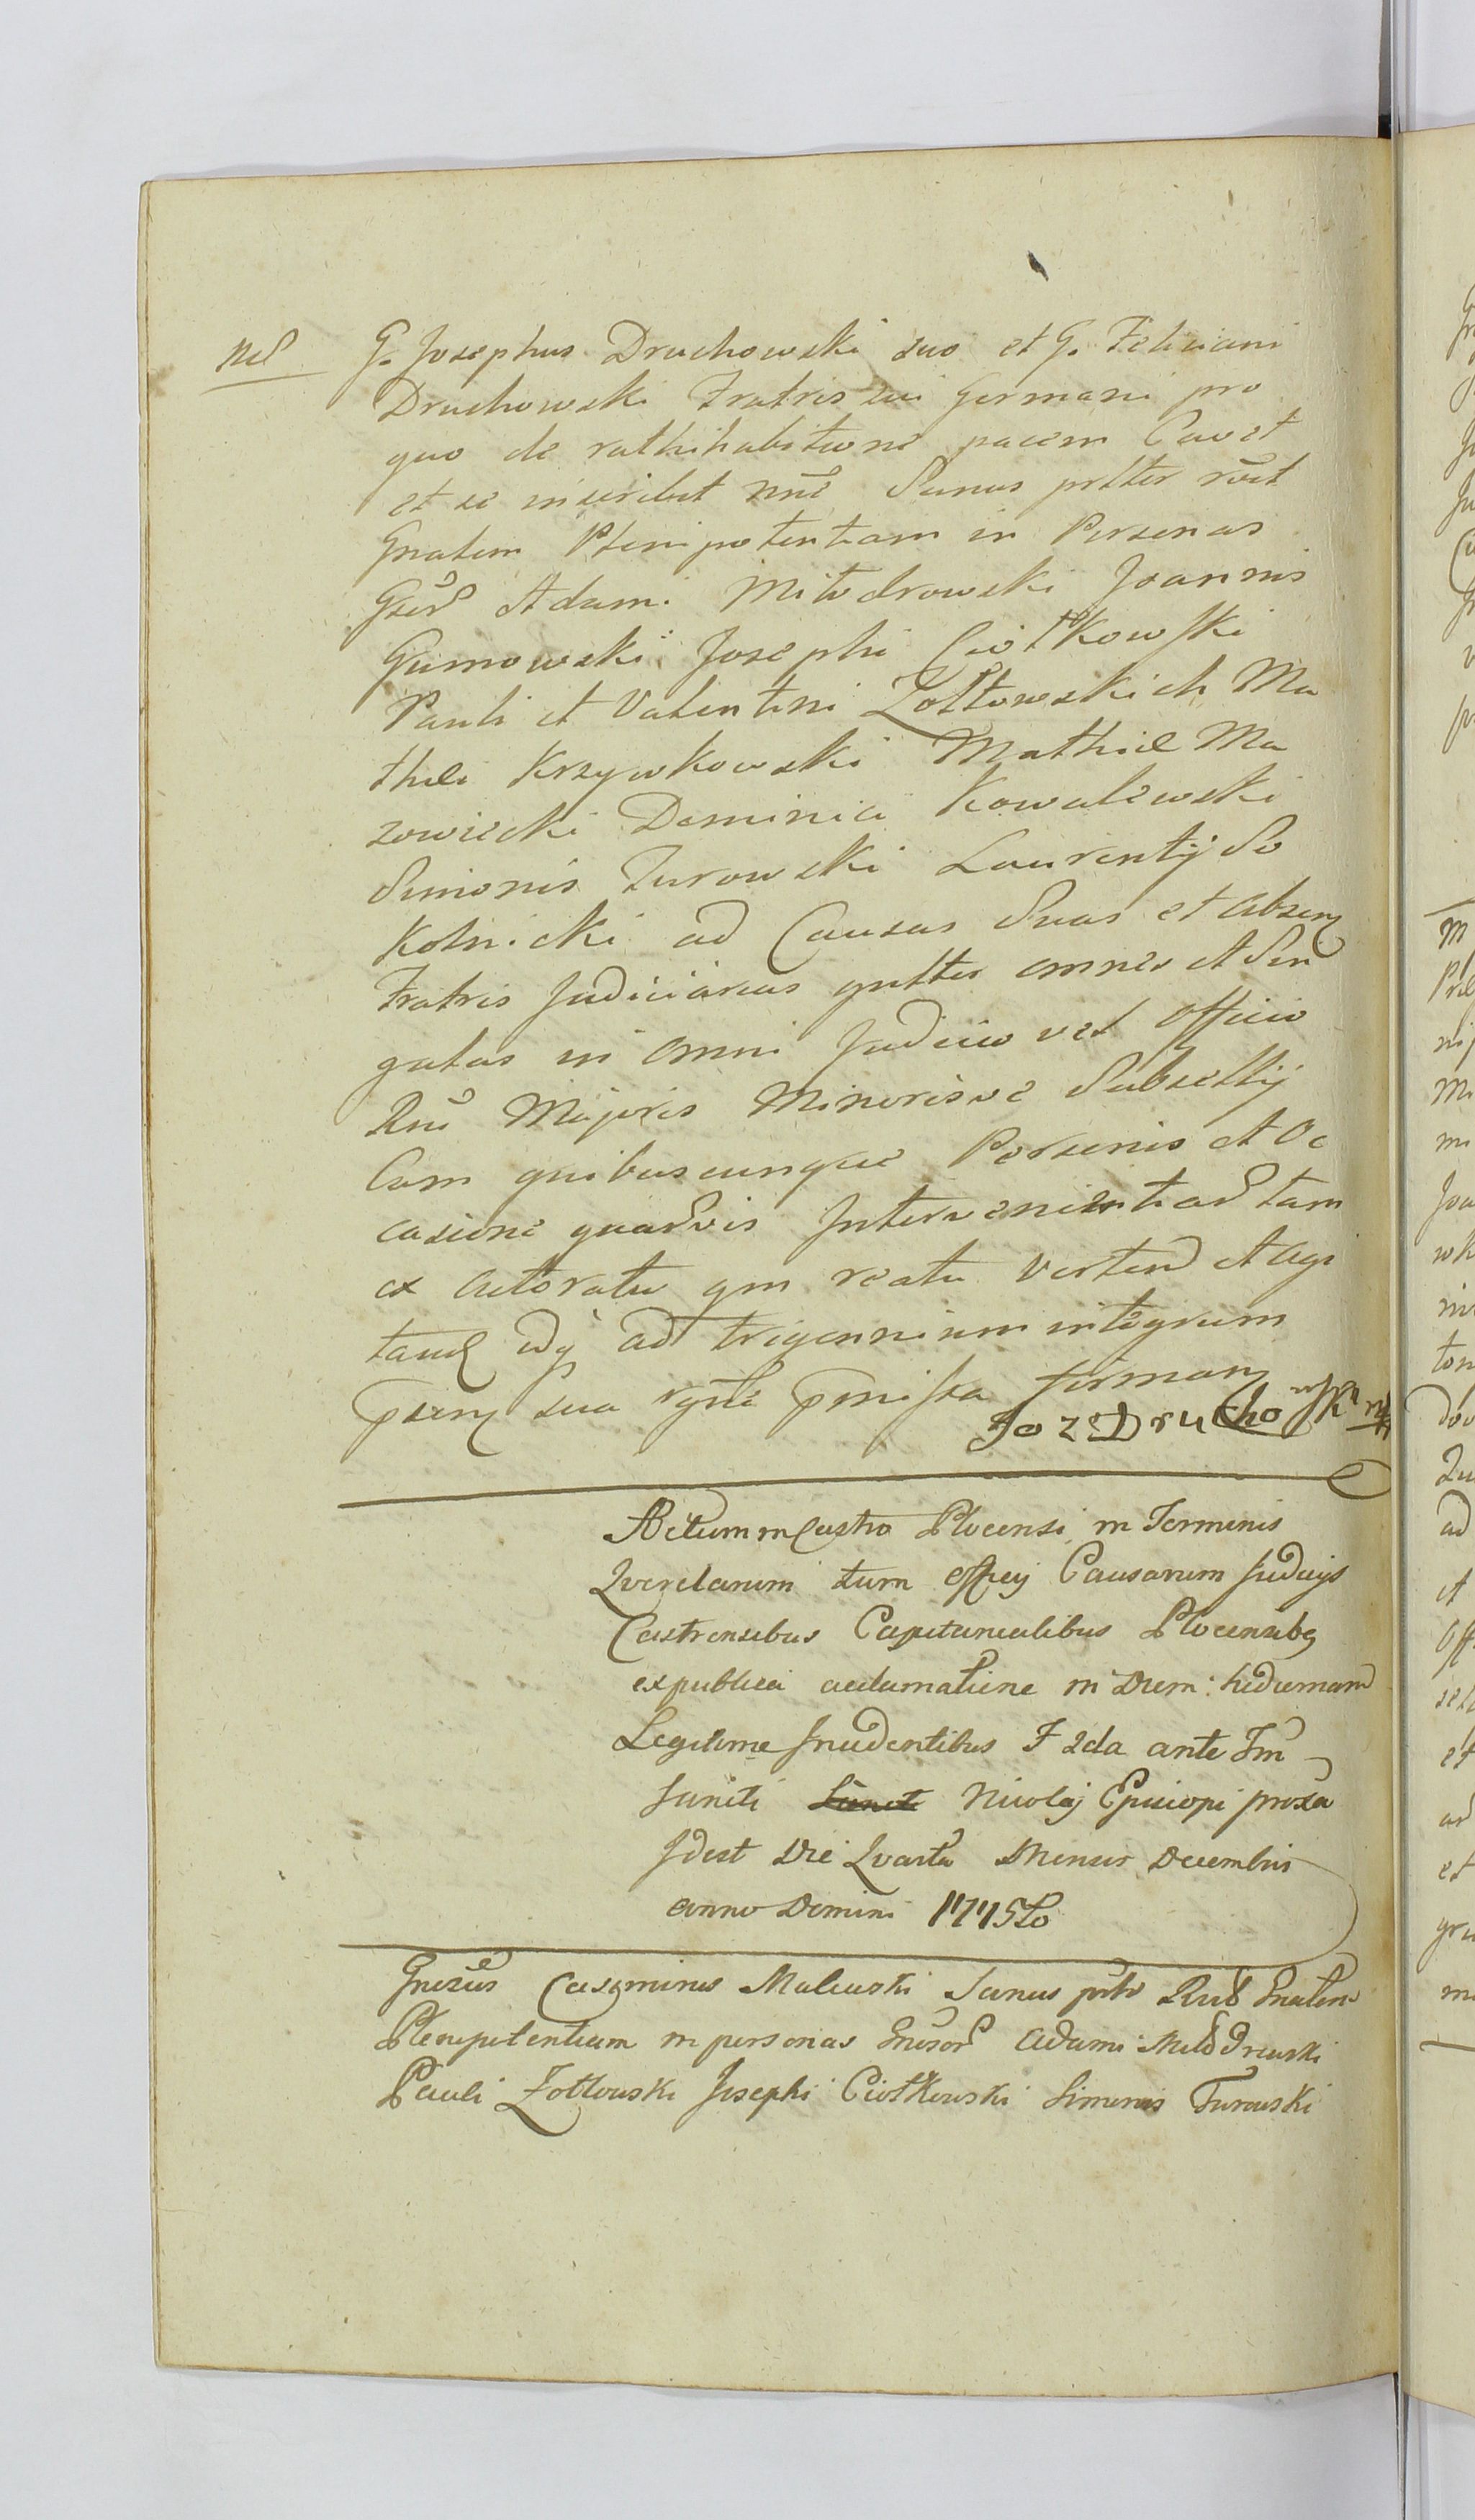 G. Josephus Druchowski suo et G. Feliciani
Druchowski Fratris sui Germani pro
quo de rathihabitione pacem Cavet
et se inscribet nne Sanus pltter rcut
Gnalem Plenipotentiam in Personas
Gser Adami Milodrowski Joannis
Gumowski Josephi Ciołkowski
Pauli et Valentini Zołtowskich Ma
thei Krzywkowski Mathiæ Ma
zowiecki Dominici Kowalewski
Simonis Turowski Laurentij So
Kolnicki ad Causas Suas et absen
Fratris Judiciarias gnltter omnes et Sin
gulas in omni Judicio vel Officio
Rni Majoris Minorisve Subsellij
Cum quibuscunque Personis et Oc
casione quarvis Intervenientiar tam
ex actoratu qm reatu verten et agi
tan idq ad trigennium integrum
psen sua rgnte pmissa firman
Joz Druchowski mp
Actum in Castro Plocensi in Terminis
Querelarum tum officij Causarum Judicijs
Castrensibus Capitanealibus Plocensibq
ex publica acclamatione in Diem hodiernam
Legitime Incidentibus F 2da ante Fm
Sancti Sancti Nicolaj Episcopi proxa
Idest Die Quarta Mensis Decembris
anno Domini 1775to
Gnesus Casimirus Malewski Sanus pltr Rut Gnalem
Plenipotentiam in personas Gnosor Adami Milodrowski
Pauli Zołtowski Josephi Ciołkowski Simonis Turowski